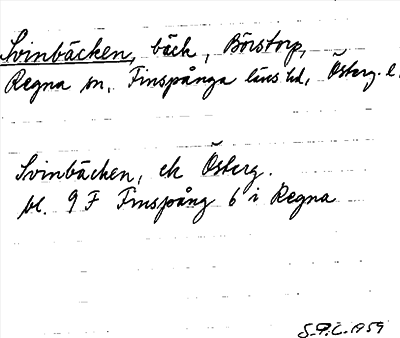 Svinbäcken, bäck, Börstorp,
Regna sn, Finspånga läns hd, Österg. l.
Svinbäcken, ek Österg.
bl. 9 F Finspång 6 i Regna
S.P.C. 1959